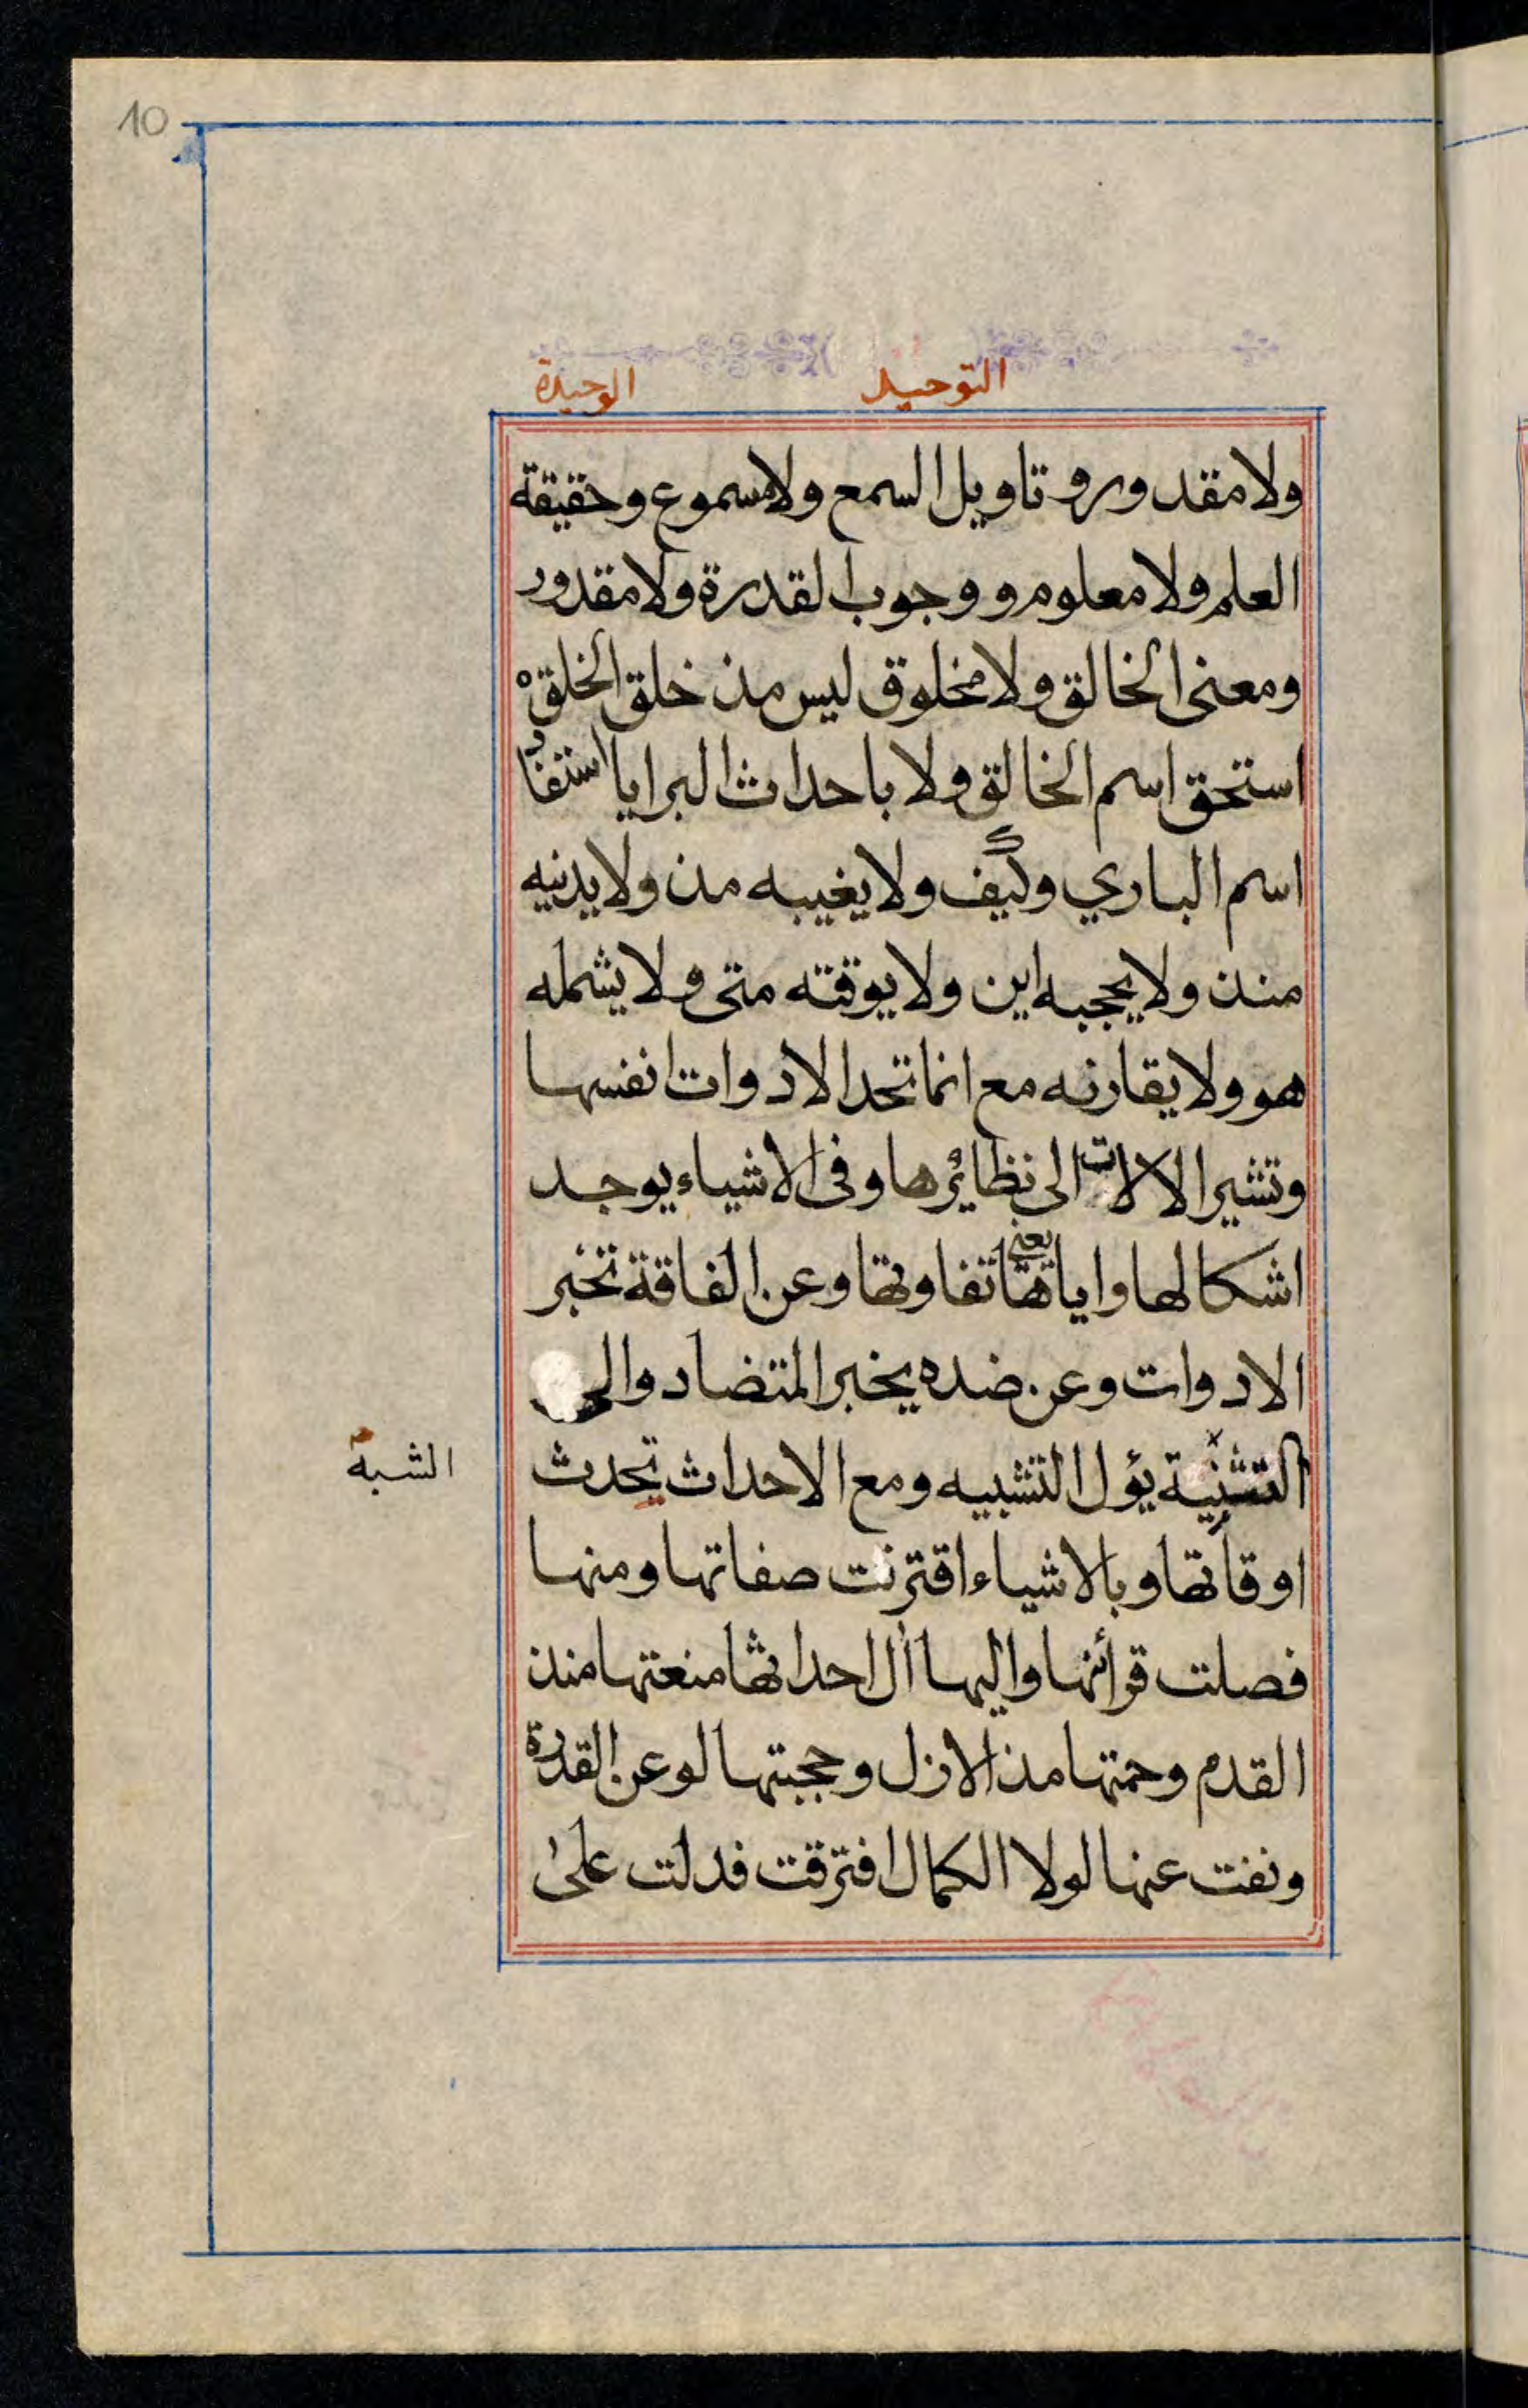 10
التوحيد الوحيدة
ولا مقدور وتاويل السمع ولا مسموع وحقيقة
العلم ولا معلوم ووجوب القدرة ولا مقدور
ومعنى الخالق ولا مخلوق ليس مذ خلق الخلق
استحق اسم الخالق ولا باحداث البرايا استفاد
اسم الباري وكيف ولا يغيبه مذ ولا يدنيه
منذ ولا يحجبه اين ولا يوقته متى ولا يشمله
هو ولا يقارنه مع انما تحد الادوات انفسها
وتشير الالات الى نظائرها وفى الاشياء يوجد
اشكالها واياتها يعني تفاوتها وعن الفاقة تخبر
الادوات وعن ضده يخبر المتضاد والى
التشنية يؤل التشبيه ومع الاحداث تحدث
الشبه
اوقاتها وبالاشياء اقترنت صفاتها ومنها
فصلت قرائنها واليها آل احداثها منعتها منذ
القدم وحمتها مذ الازل وحجبتها لو عن القدرة
ونفت عنها لولا الكمال افترقت فدلت على